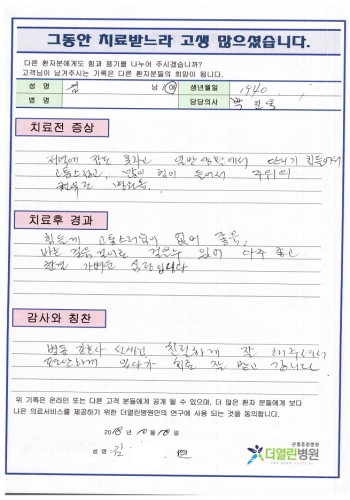 그동안 치료받느라 고생 많으셨습니다.
다른 환자분에게도 힘과 용기를 나누어 주시겠습니까?
고객님이 남겨주시는 기록은 다른 환자분들의 희망이 됩니다.
성 명 김 남 여 생년월일 1940. .
병 명 담당의사 박
치료전 증상
저녁에 잠도 못자고 다니기 힘들어서
고통스럽고, 많이 힘이 들어서 주위의
치료후 경과
힘들게 고통스러움이 없어 좋음,
바른 걸음걸이로 걸을수 있어 아주 좋고
한결 가벼운 심정입니다
감사와 칭찬
병동 간호사 선생님 친절하게 잘 해주셔서
편안하게 있다가 치료 잘 받고 갑니다
위 기록은 온라인 또는 다른 고객 분들에게 공개 될 수 있으며, 더 많은 환자 분들에게 보다
나은 의료서비스를 제공하기 위한 더열린병원만의 연구에 사용 되는 것을 동의합니다.
2018년 10월 18일
성 명 김
관절종합병원
더열린병원